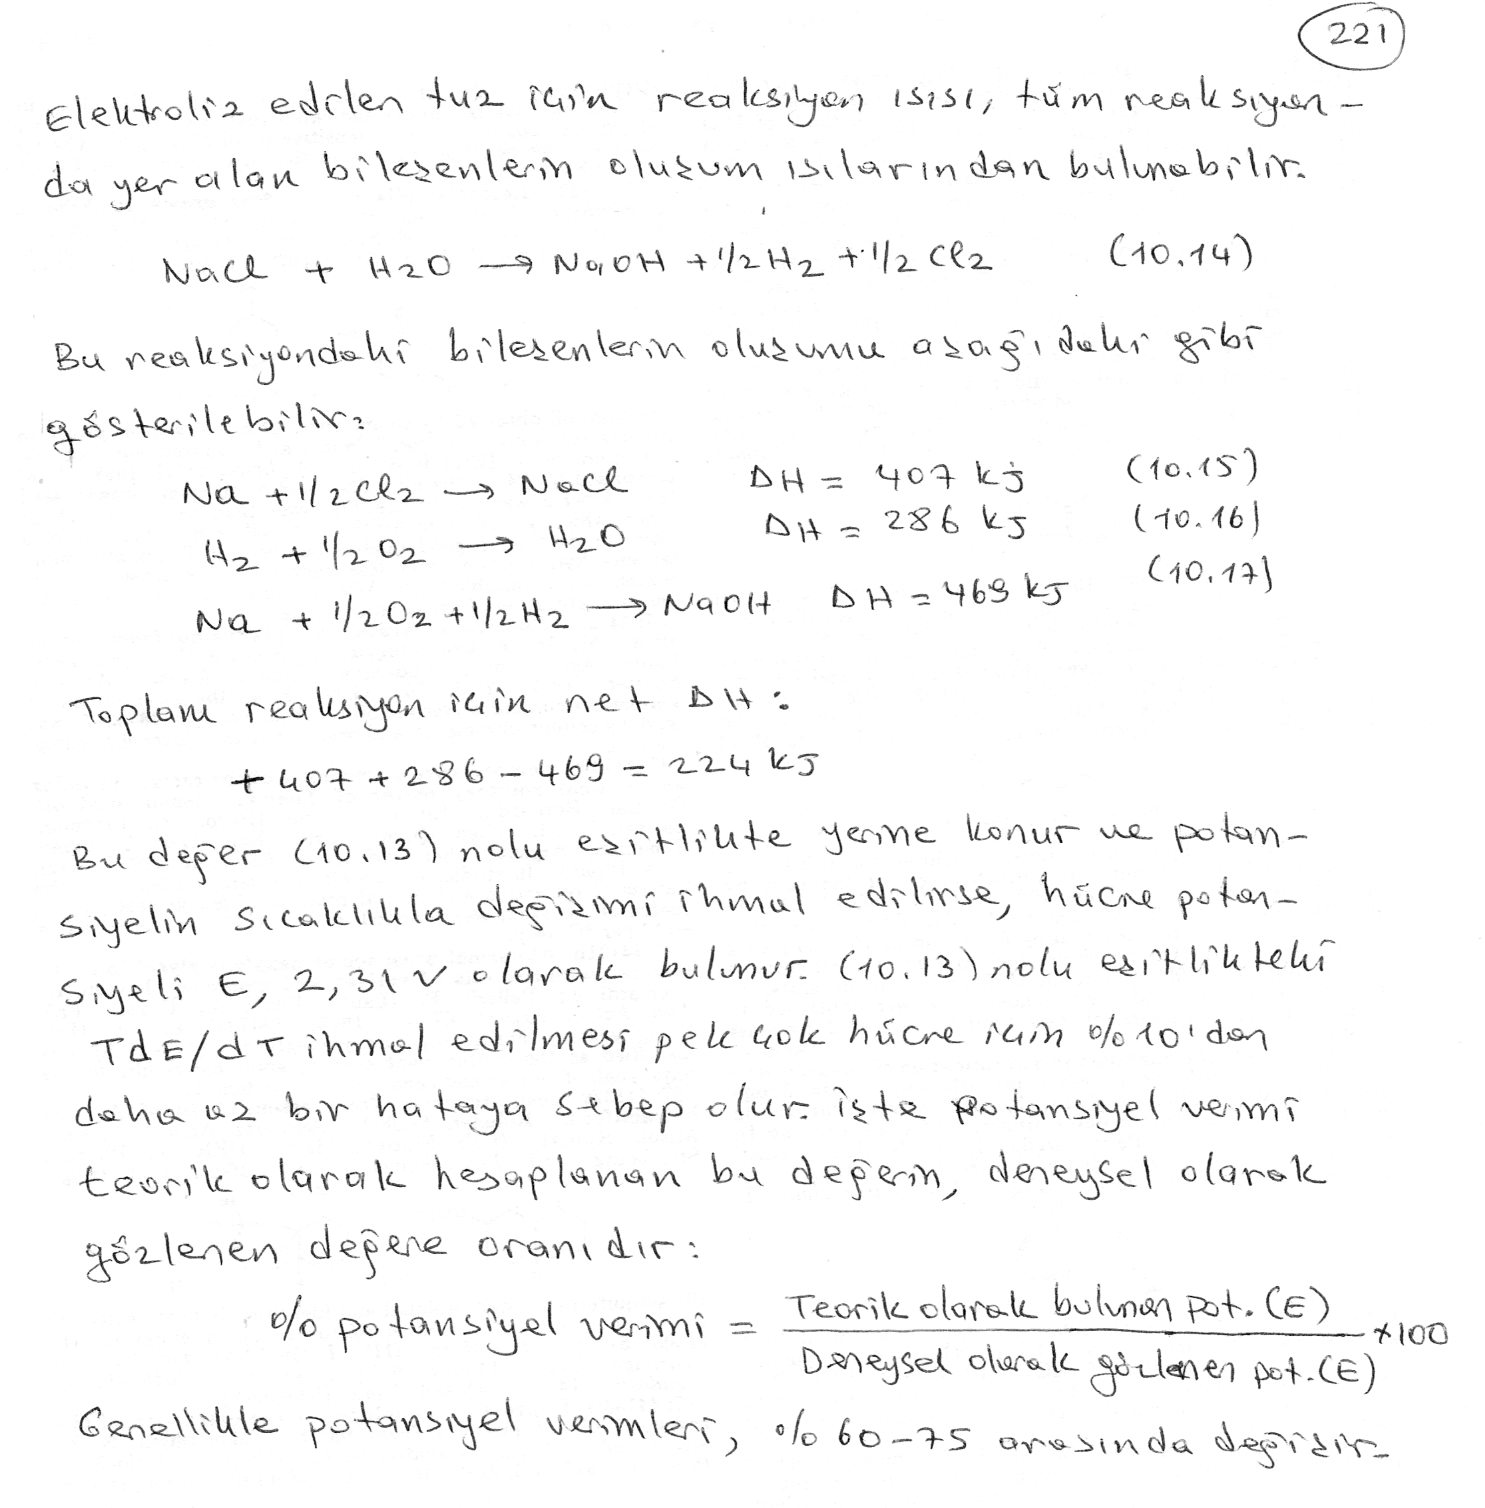 221
Elektroliz edilen tuz için reaksiyon ısısı, tüm reaksiyon-
da yer alan bileşenlerin oluşum ısılarından bulunabilir.
NaCl + H2O → NaOH + 1/2 H2 + 1/2 Cl2 (10.14)
Bu reaksiyondaki bileşenlerin oluşumu aşağıdaki gibi
gösterilebilir:
Na + 1/2 Cl2 → NaCl ΔH = 407 kj (10.15)
H2 + 1/2 O2 → H2O ΔH = 286 kJ (10.16)
Na + 1/2 O2 + 1/2 H2 → NaOH ΔH = 469 kJ (10.17)
Toplam reaksiyon için net ΔH:
+ 407 + 286 - 469 = 224 kJ
Bu değer (10.13) nolu eşitlikte yerine konur ve potan-
siyelin sıcaklıkla değişimi ihmal edilirse, hücre potan-
siyeli E, 2,31 V olarak bulunur. (10.13) nolu eşitlikteki
TdE/dT ihmal edilmesi pek çok hücre için %10'dan
daha az bir hataya sebep olur. işte potansiyel verimi
teorik olarak hesaplanan bu değerin, deneysel olarak
gözlenen değere oranıdır:
% potansiyel verimi = Teorik olarak bulunan pot. (E) / Deneysel olarak gözlenen pot. (E) x100
Genellikle potansiyel verimleri, %60-75 arasında değişir.